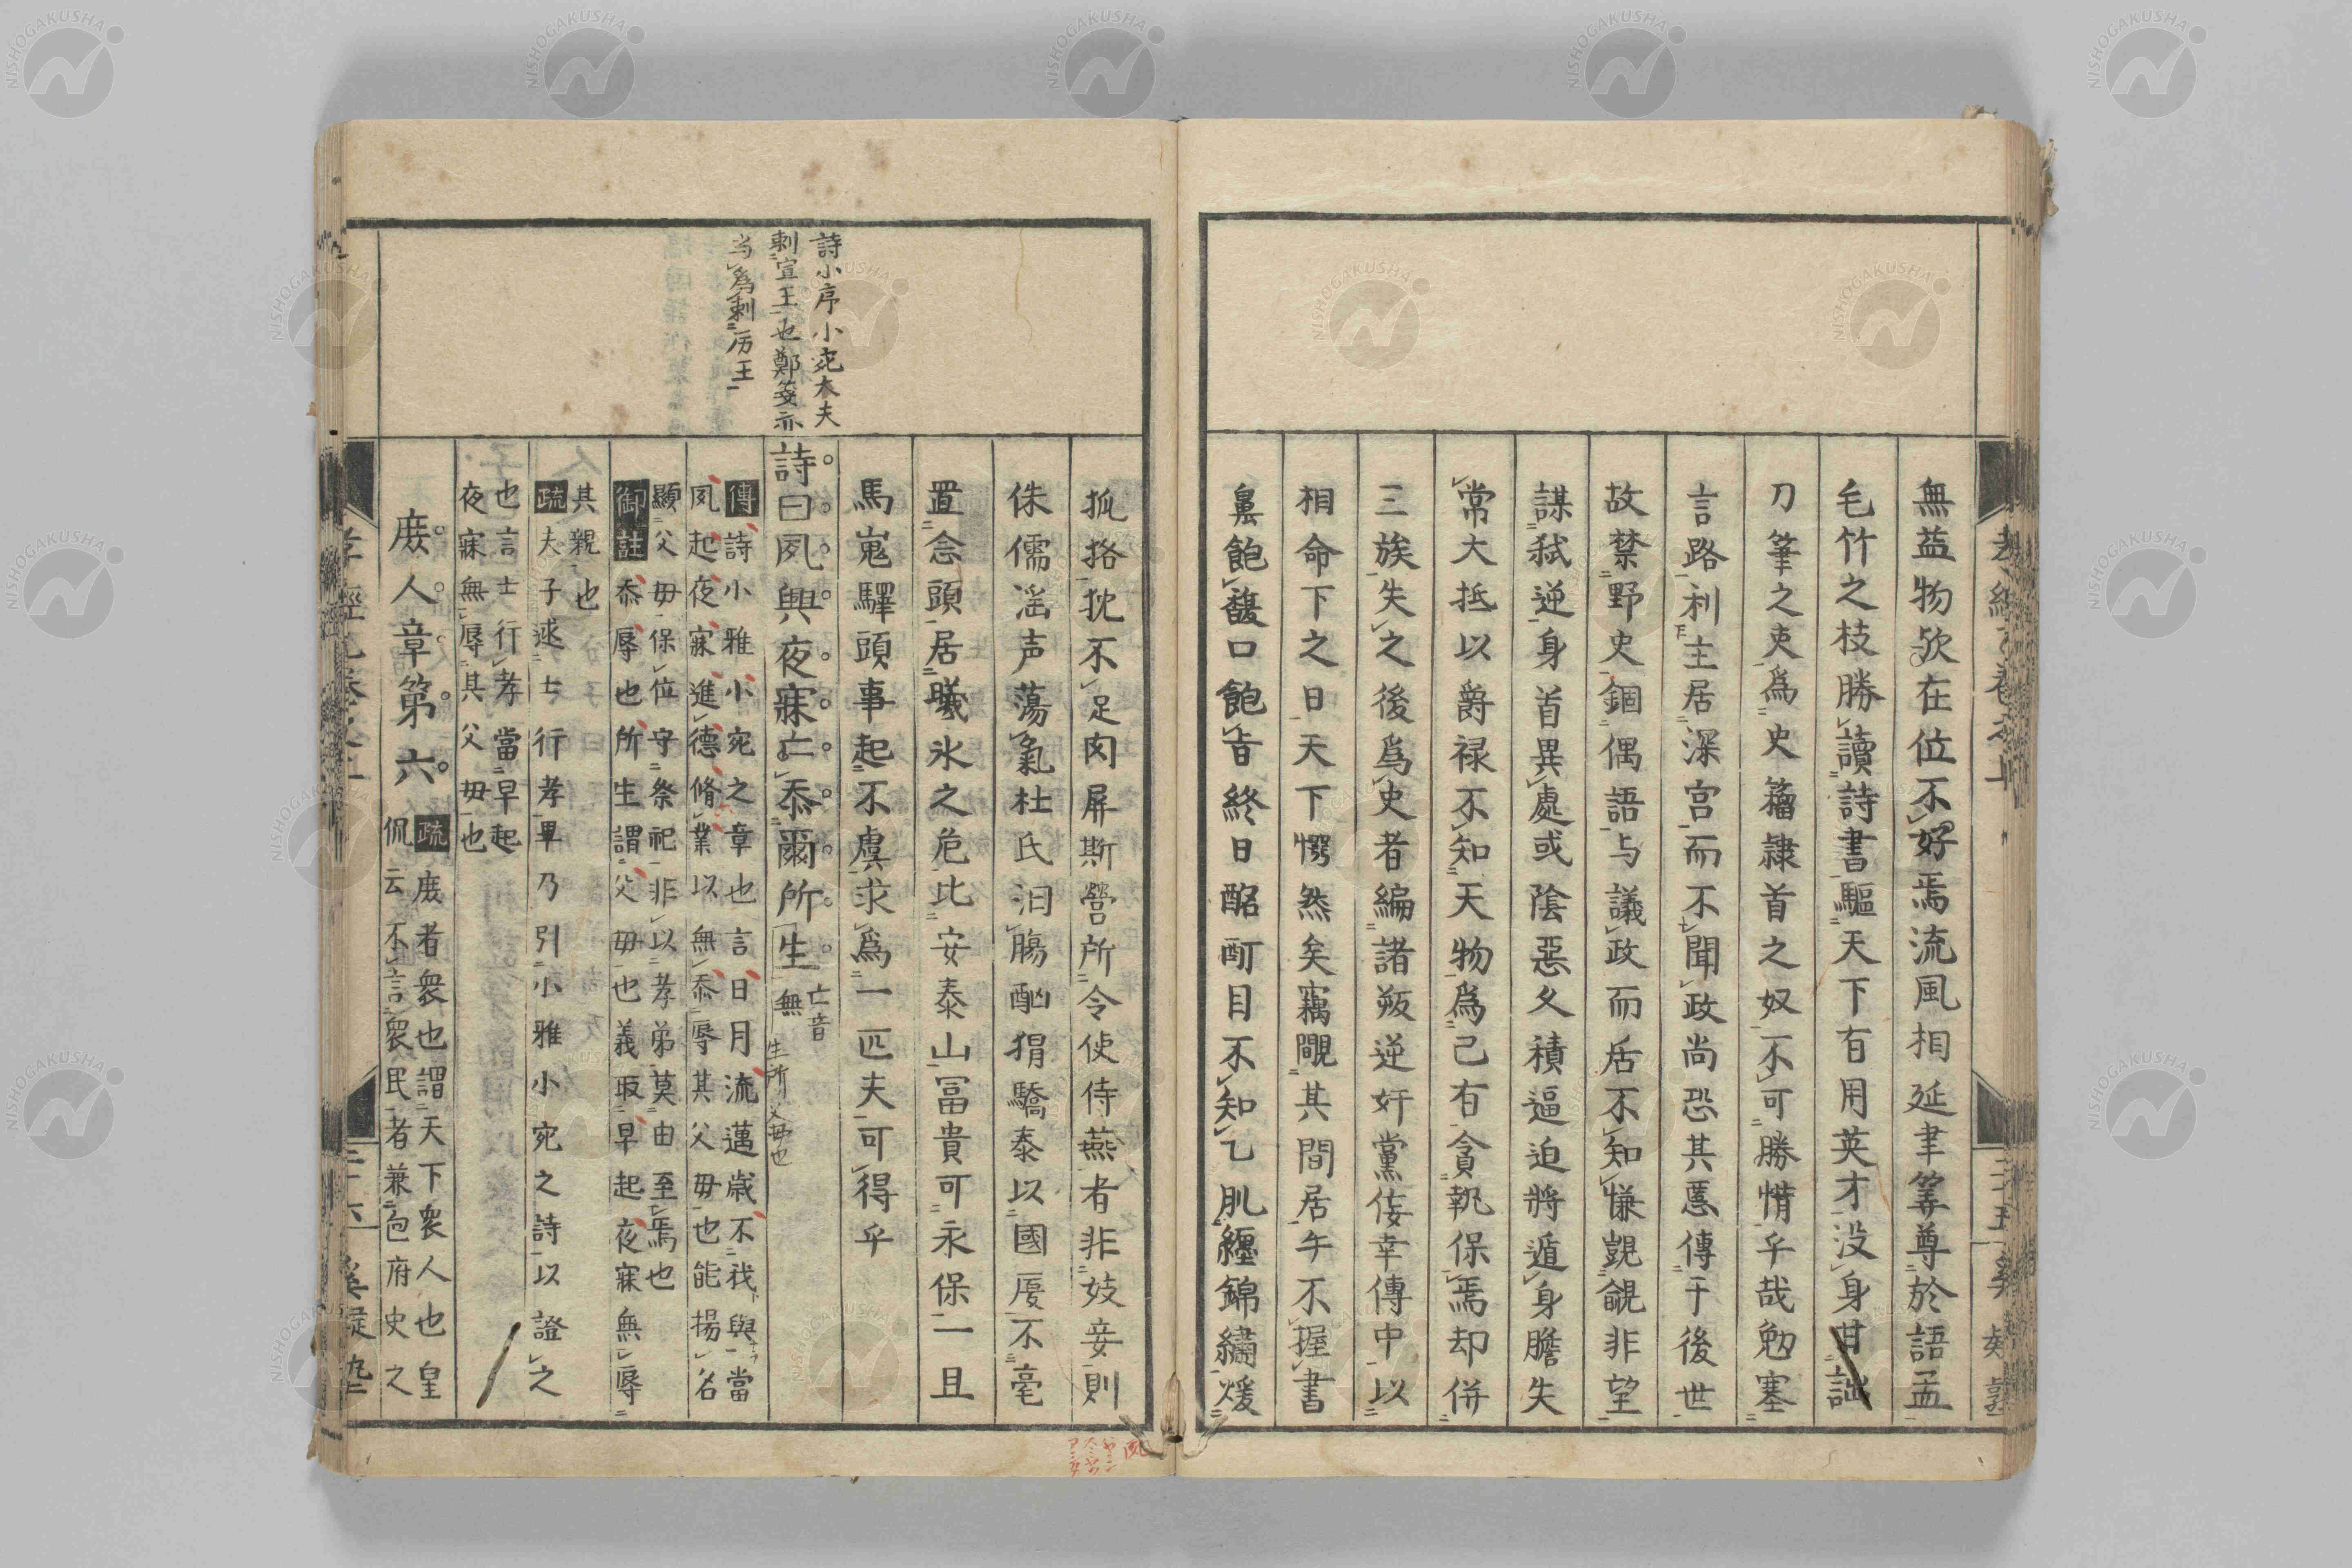 無益物欤在位不好焉流風相延聿等尊於語孟
毛竹之枝勝讀詩書驅天下有用英才没身甘詘
刀筆之吏爲史籀隷首之奴不可勝惜乎哉勉塞
言路利主居深宮而不聞政尚恐其惡傳于後世
故禁野史錮偶語与議政而居不知慊覬覦非望
謀弑逆身首異處或陰惡久積逼迫將遁身膽失
常大抵以爵禄不知天物爲己有貪執保焉却併
三族失之後爲史者編諸叛逆奸黨倿幸傳中以
相命下之日天下愕然矣竊覸其間居乍不握書
鼻飽馥口飽旨終日酩酊目不知乙肌纒錦繡煖
狐挌枕不足肉屏斯營所令使侍燕者非妓妾則
侏儒滛声蕩氣杜氏汨腸酗狷驕泰以國厦不毫
置念頭居曦氷之危比安泰山冨貴可永保一旦
馬嵬驛頭事起不虞求爲一匹夫可得乎
詩小序小宛大夫
刺宣王也鄭箋亦
当爲刺厉王
詩曰夙興夜寐亡忝爾所生
亡音
無
生所父毋也
傳詩小雅小宛之章也言日月流邁歳不我與當
夙起夜寐進德脩業以無忝辱其父毋也能揚名
顯父毋保位守祭祀非以孝弟莫由至焉也
御註忝辱也所生謂父毋也義取早起夜寐無辱
其親也
疏夫子逑士行孝畢乃引小雅小宛之詩以證之
也言士行孝當早起
夜寐無辱其父毋也
庻人章第六
疏庻者衆也謂天下衆人也皇
侃云不言衆民者兼包府史之